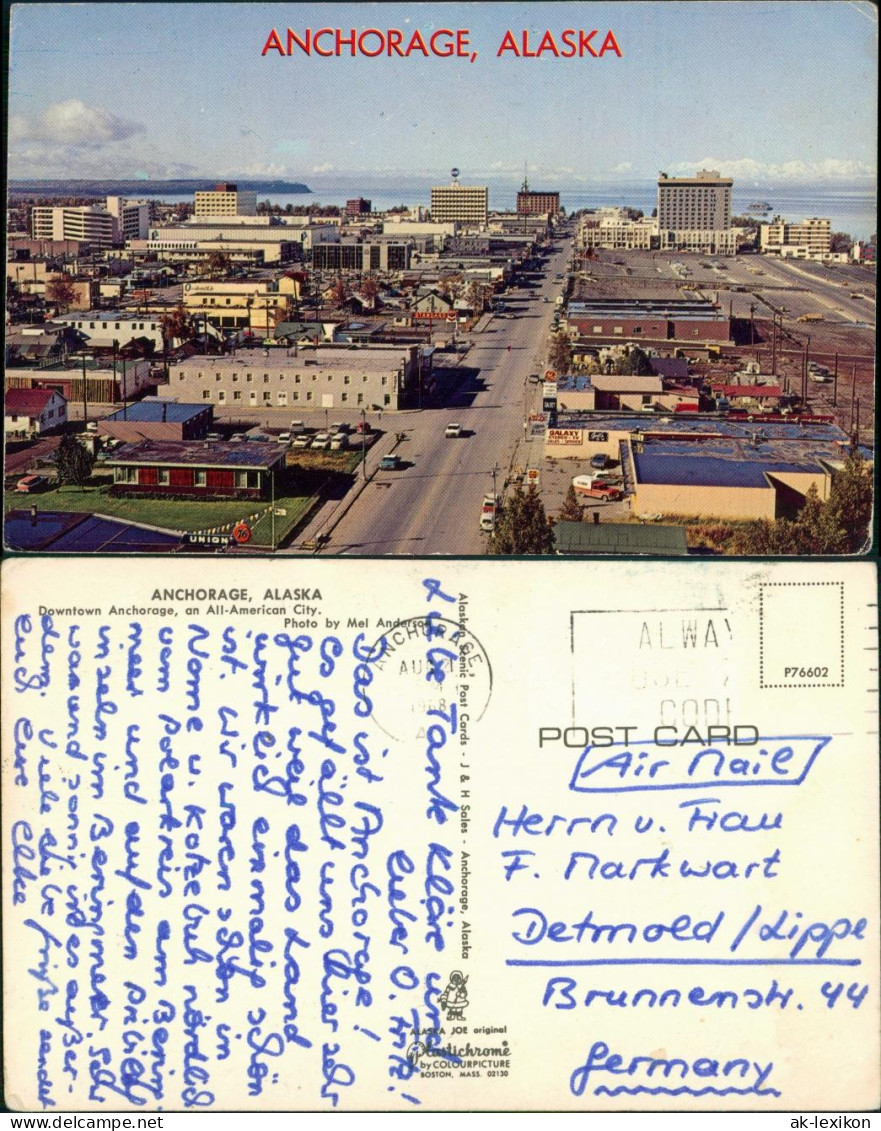 ANCHORAGE, ALASKA
GALAXY
UNION 76
ANCHORAGE, ALASKA
Downtown Anchorage, an All-American City.
Photo by Mel Anderson
Liebe Tante Kläre und
lieber O. Fritz!
Das ist Anchorage!
Es gefällt uns hier sehr
gut weil das Land
wirklich einmalig schön
ist. Wir waren schon in
Nome u. Kotzebue nördlich
vom Polarkreis am Bering
meer und auf den Pribilof
inseln im Beringmeer. Sehr
warm und sonnig ist es außer-
dem. Viele liebe Grüße sendet
euch eure Elke
Alaskan Scenic Post Cards - J & H Sales - Anchorage, Alaska
ALASKA JOE original
Plastichrome
by COLOURPICTURE
BOSTON, MASS. 02130
ANCHORAGE,
AUG
1968
ALWAY
USE
CODE
P76602
POST CARD
Air Mail
Herrn u. Frau
F. Markwart
Detmold/Lippe
Brunnenstr. 44
Germany
ak-lexikon
Delcampe.net